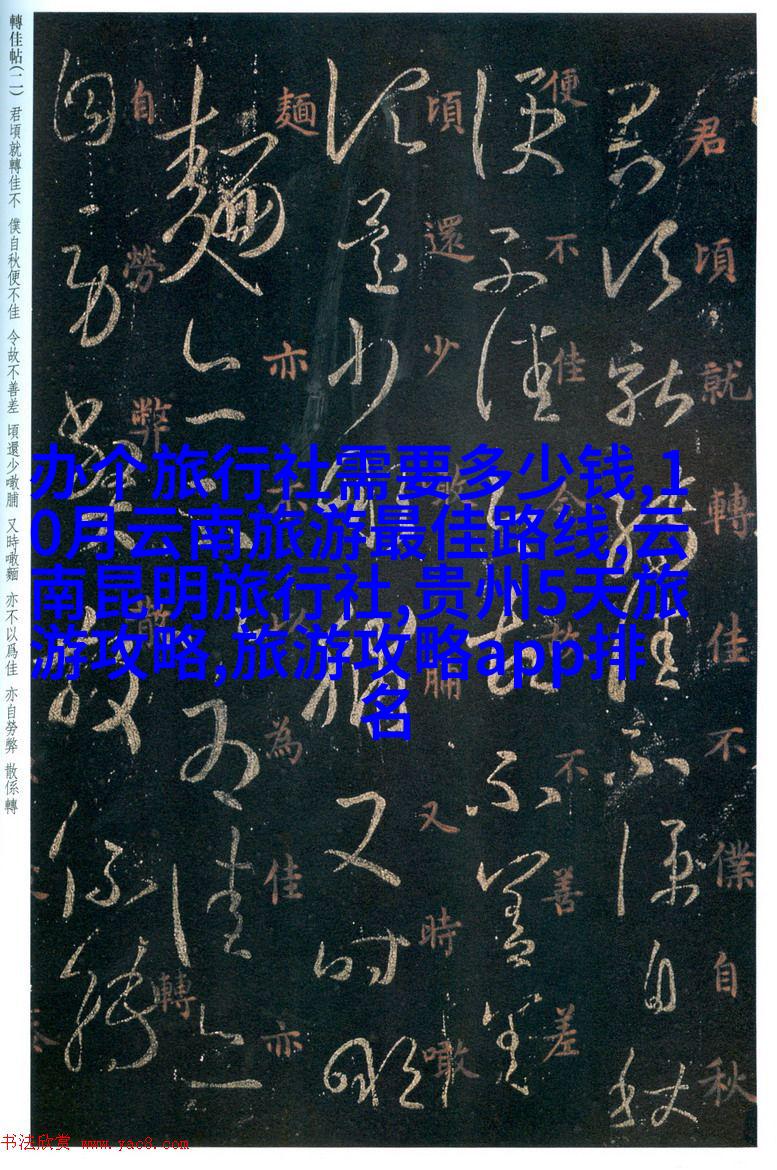 轉佳帖(二) 君頃就轉佳不 僕自秋便不佳 令故不善差 頃還少噉脯 又時噉麵 亦不以爲佳 亦自勞弊 散係轉
君頃就轉佳不僕自秋
便不佳令故不善差
頃還少噉脯又時噉
麵亦不以為佳亦
自勞弊散係轉
办个旅行社需要多少钱,1
0月云南旅游最佳路线,云
南昆明旅行社,贵州5天旅
游攻略,旅游攻略app排
名
书法欣赏 www.yac8.com